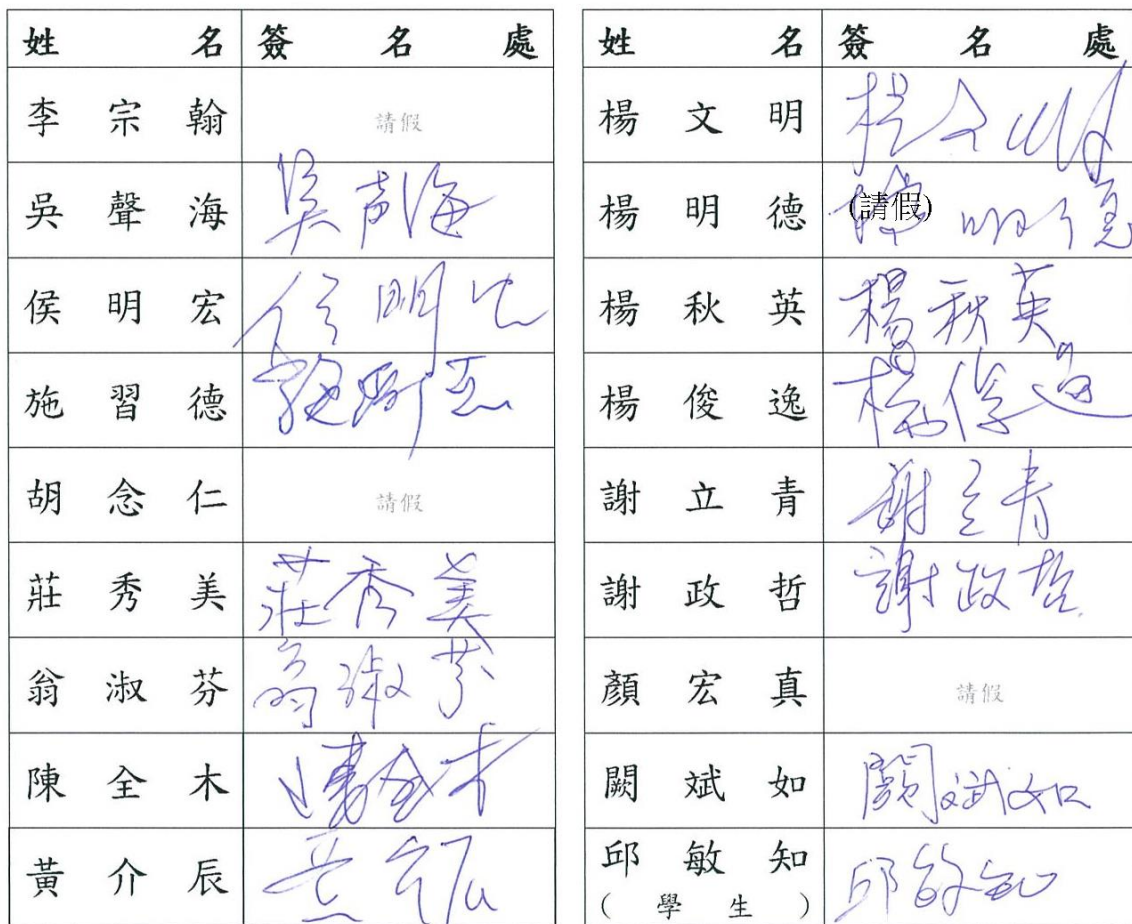 姓名 簽名處
李宗翰 請假
吳聲海 吳声海
侯明宏 侯明宏
施習德 施習德
胡念仁 請假
莊秀美 莊秀美
翁淑芬 翁淑芬
陳全木 陳全木
黃介辰
姓名 簽名處
楊文明 楊文明
楊明德 (請假) 楊明德
楊秋英 楊秋英
楊俊逸 楊俊逸
謝立青 謝立青
謝政哲 謝政哲
顏宏真 請假
闕斌如 闕斌如
邱敏知 邱敏知
(學生)